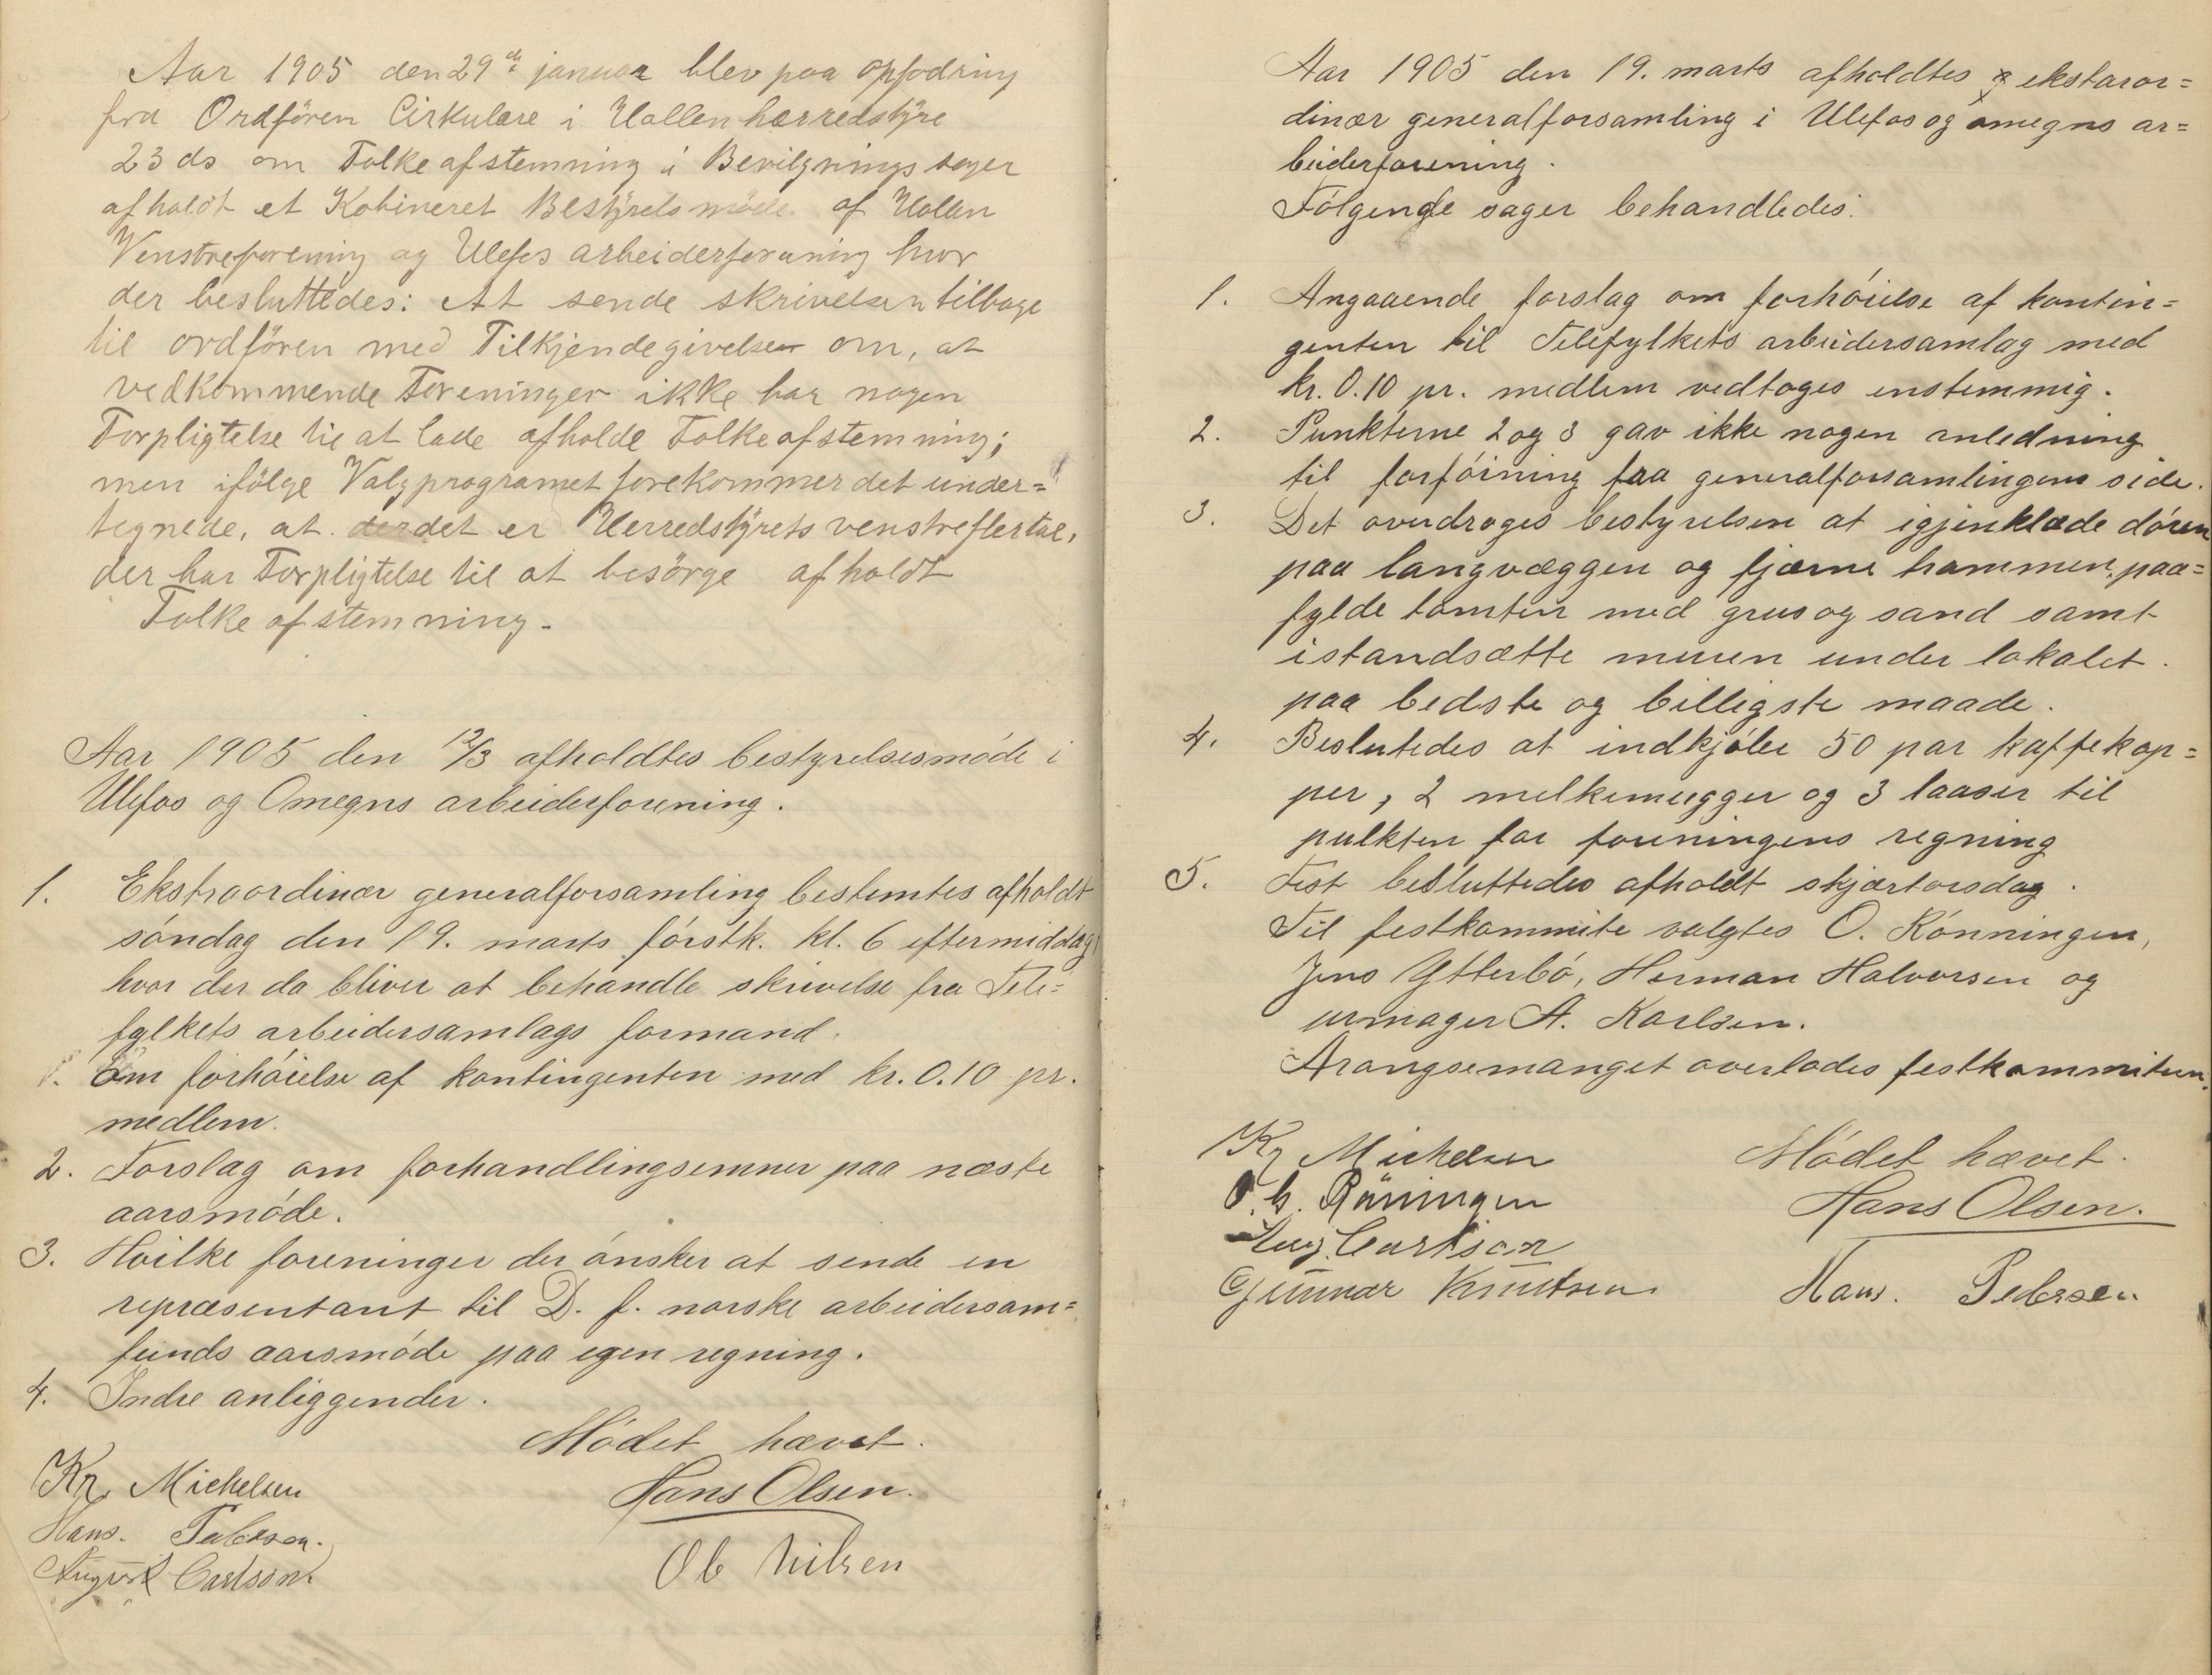 Aar 1905 den 29de januar blev paa opfodring
fra Ordfören Cirkulære i Hollen herredstyre
23 ds om Folkeafstemning i Bevilgnings sager
afholdt et Kobineret Bestyrelsmöde af Hollen
Venstreforening og Ulefos arbeiderforening hvor
der besluttedes: At sende skrivelsen tilbage
til ordfören med Tilkjendegivelser om, at
vedkommende Foreninger ikke har nogen
Forpligtelse til at lade afholde Folkeafstemning;
men ifölge Valgprogramet forekommer det under=
tegnede, at det er Herredstyrets venstreflertal,
der har Forpligtelse til at besörge afholdt
Folkeafstemning.
Aar 1905 den 12/3 afholdtes bestyrelsesmöde i
Ulefos og Omegns arbeiderforening.
1. Ekstraordinær generalforsamling bestemtes afholdt
söndag den 19. marts förstk. kl. 6 eftermiddag
hvor der da bliver at behandle skrivelse fra Tele=
fylkets arbeidersamlags formand.
1. Om forhöielse af kontingenten med kr. 0.10 pr.
medlem.
2. Forslag om forhandlingsemner paa næste
aarsmöde.
3. Hvilke foreninger der önsker at sende en
repræsentant til D. f. norske arbeidersam=
funds aarsmöde paa egen regning.
4. Indre anliggender.
Mödet hævet.
Kr. Michelsen
Hans Olsen.
Hans. Pedersen.
August Carlsson
Ole Nilsen
Aar 1905 den 19. marts afholdtes ekstaror=
dinær generalforsamling i Ulefos og omegns ar=
beiderforening.
Fölgende sager behandledes:
1. Angaaende forslag om forhöielse af kontin=
genten til Telefylkets arbeidersamlag med
kr. 0.10 pr. medlem vedtoges enstemmig.
2. Punkterne 2 og 3 gav ikke nogen anledning
til forföining fra generalforsamlingens side.
3. Det overdroges bestyrelsen at igjenklæde dören
paa langvæggen og fjærne hammen, paa=
fylde tomten med grus og sand samt
istandsætte muren under lokalet
paa bedste og billigste maade.
4. Beslutedes at indkjöbe 50 par kaffekop=
per, 2 melkemugger og 3 laaser til
pulkten for foreningens regning
5. Fest besluttedes afholdt skjærtorsdag.
Til festkommite valgtes O. Rönningen,
Jens Ytterbö, Herman Halvorsen og
urmager A. Karlsen.
Arangsemanget overlodes festkommiteen.
Kr Michelsen
Mödet hævet.
O. G. Röningen
Hans Olsen.
Aug. Carlsson
Gunnar Knutsen
Hans. Pedersen